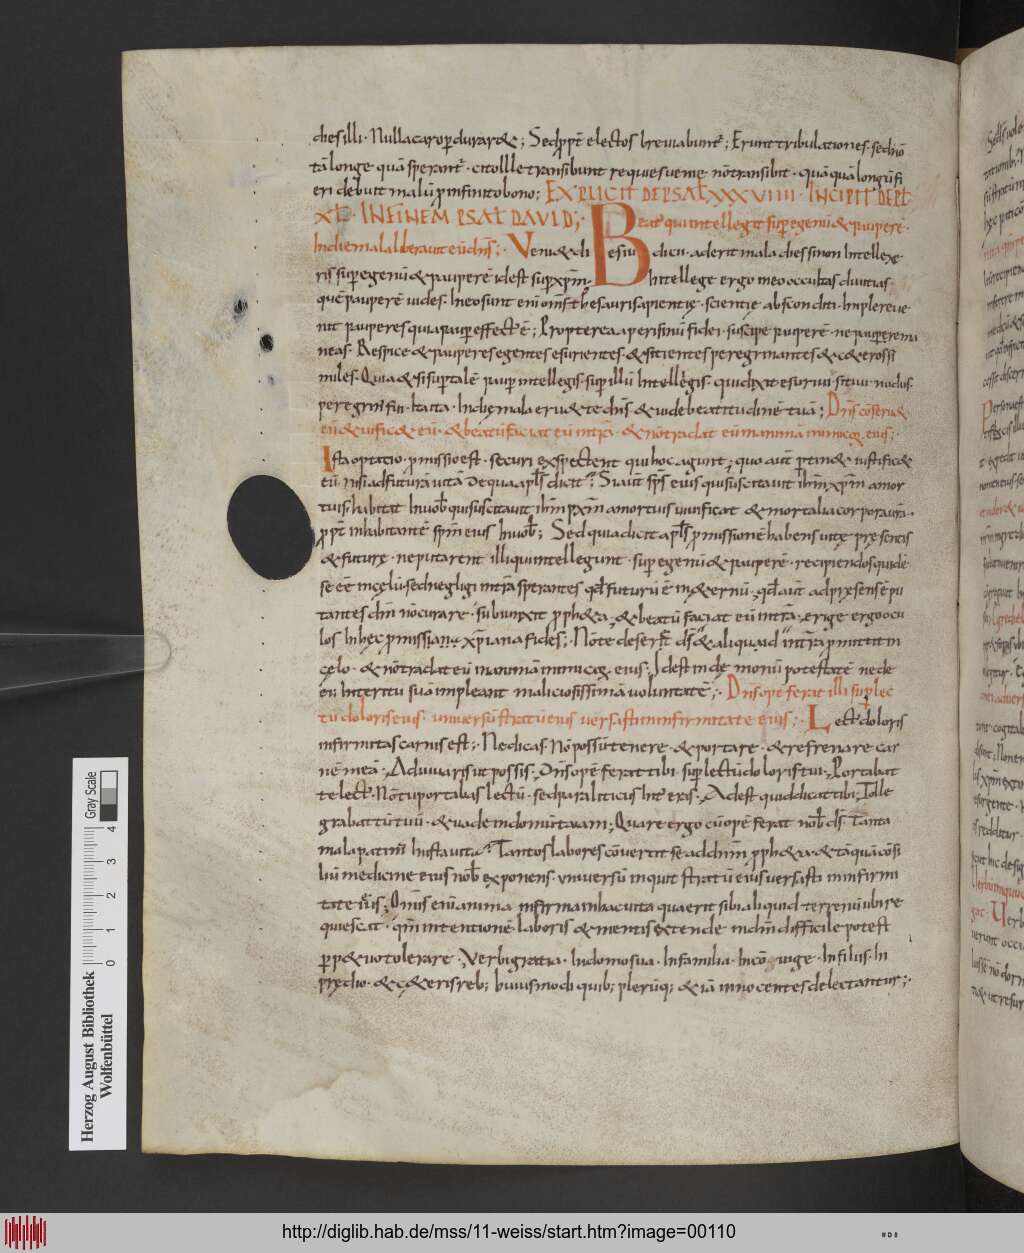 dies illi · Nulla caro perduraret; Sed ppt electos breviabunt; Erunt tribulationes · sed nō
tā longe quā sperant · cito ille transibunt requies veniens nō transibit · quā quā longū fi
eri debuit malū p infinito bono; EXPLICIT DE PSAL XXXVIIII · INCIPIT DE PL
XL · IN FINEM PSAL DAVID; Beat qui intellegit sup egenū & pauperē ·
In die mala liberavit eū dns; Veniet di es iudicii · aderit mala dies si non intellexe
ris sup egenū & pauperē id est sup xpm · Intellege ergo in eo occultas divitias
quē pauperē vides · In eo sunt eni oms thesauri sapientię · scientię absconditi · Implere ve
nit pauperes quia paup effect ē; Propterea aperi sinū fidei · suscipe pauperē · ne pauper rema
neas · Respice & pauperes egentes esurientes & sitientes peregrinantes & cęteros si
miles · Quia & si sup talē paup intellegis · sup illū intellegis · qui dixit esurivi · sitivi · nudus ·
peregrin fui · & cęta · In die mala eruet te dns & vide beatitudinē tuā; Dns conservet
eū & vificet eū · & beatū faciat eū in trā · & nō tradat eū in manū inimicor eius;
Ista optatio pmissio est · securi exspectent qui hoc agunt; quo aut ptinet iustificet
eū nisi ad futurā vitā de qua apls dicit · Si aut sps eius qui suscitavit ihm xpm a mor
tuis · habitat in vob qui suscitavit ihm xpm a mortuis vivificat & mortalia corpora vrā ·
ppt inhabitantē spm eius in vob; Sed quia dicit apls pmissionē habens vitę pręsentis
& futurę · ne putarent illi qui intellegunt · sup egenū & pauperē · recipiendos quidē
se eē in cęlū · sed neglegi in trā sperantes qd futurū ē in ęternū · qd aut ad pręsens ē pu
tantes dm nō curare · subiunxit pphęta · & beatū faciat eū in trā · erige ergo ocu
los in hęc pmissione xpiana fides; Nō te deserit ds & aliquid in trā pmittit in
cęlo · & nō tradat eū in manū inimicor eius · Id est in dęmoniū potestatē nec de
eū interitu suā impleant maliciosissimā voluntatē; Dns opē ferat illi sup lec
tū doloris eius · universū stratū eius versasti in infirmitate eius; Lect doloris
infirmitas carnis est; Ne dicas · Nō possū tenere & portare & refrenare car
nē meā · Adiuvaris ut possis · Dns opē ferat tibi · sup lectū doloris tui · Portabat
te lect · Nō tu portabas lectū · sed paraliticus int eras · Adest qui dicat tibi; Tolle
grabattū tuū · & vade in domū tuam; Quare ergo cū opē ferat nob ds · tanta
mala patim in ista vita · Tantos labores cōvertit se ad dnm pphęta & tāquā cōsi
liū medicinę eius nob exponens · universū inquit stratū eius versasti in infirmi
tate eius; Omis eni anima infirma in hac vita quaerit sibi aliquid terrenū ubi re
quiescat · qm intentionē laboris & mentis extendę in dm difficile potest
ppetuo tolerare · Verbi gratia · In domo sua · In familia · In coniuge · In filiis · In
prędio · & cęteris reb; huiusmodi quib; plerūq; & iā innocentes delectantur;
0 1 2 3 4
Gray Scale
Herzog August Bibliothek
Wolfenbüttel
http://diglib.hab.de/mss/11-weiss/start.htm?image=00110